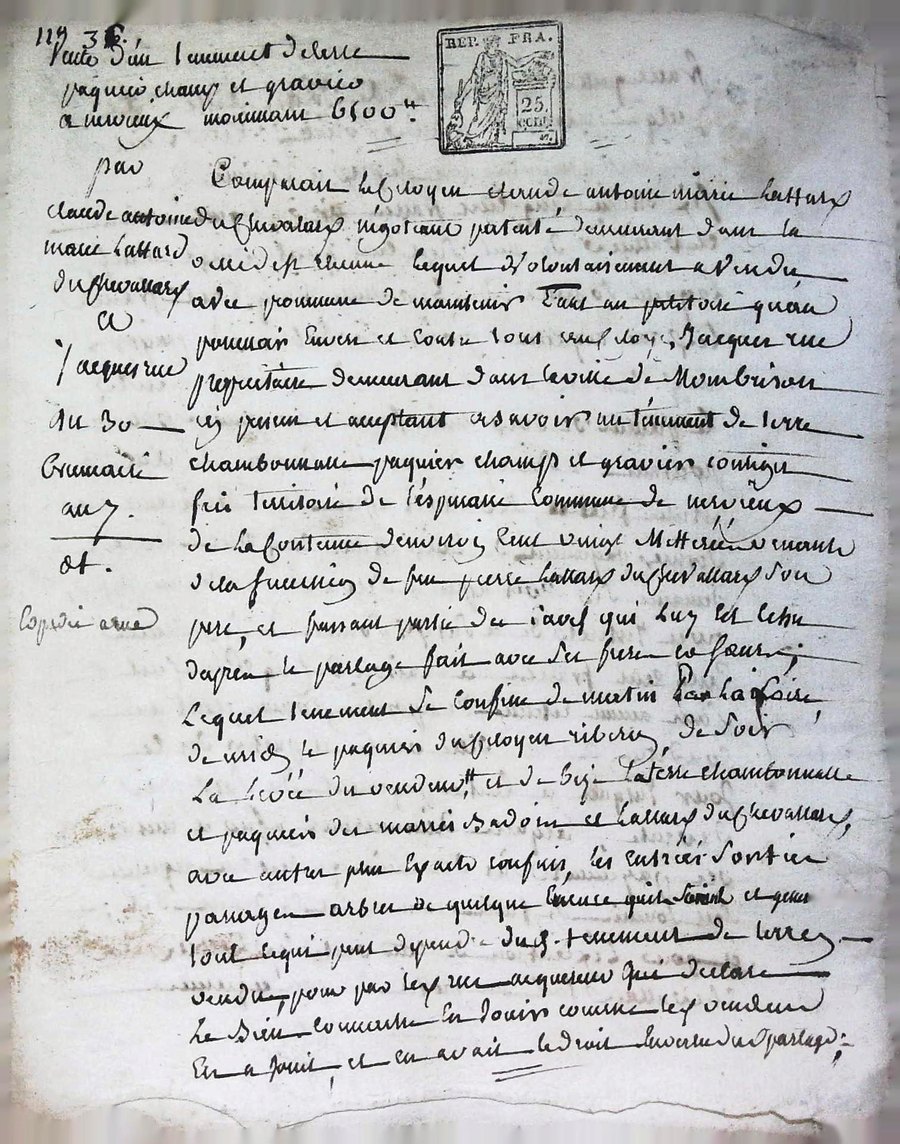 119 36.
Vente d'un tenement de terre
paquier champ et gravier
a nervieux moiennant 6100 tt.
par
claude antoine
marie hattard
du chevallard
et
jacques rue
du 30
brumaire
an 7.
dt.
Expedié a rue
REP. FRA.
25
CENT.
Comparait le citoyen claude antoine marie hattard
du chevalard négotiant patenté demeurant dans la
lequel volontairement a vendu
avec promesse de maintenir tant au petitoire qu'au
envers et contre tous au citoyen jacques rue
propriétaire demeurant dans la ville de Mombrison
ici present et acceptant a savoir un tenement de terre
chambonnalle paquier champ et gravier contigus
scis territoire de commune de nervieux
de la contenue d'environ cent vingt venant
de la succession de feu pierre hattard du chevallard son
pere, et faisant partie de ceux qui luy est echu
d'apres le partage fait avec ses freres et soeurs;
Lequel tenement se confine de matin par la loire,
de midy le paquier du citoyen de soir
La levée du vendeur, et de bize la terre chambonnalle
et paquiers des mariés badoin et hattard du chevallard,
avec autres plus exacts confins, les entrées sorties
passages arbres de quelque essence qu'ils soient et
tout ce qui peut dependre dud. tenement de terre
vendu, pour par led. rue acquereur qui declare
le bien connaitre en jouir comme led. vendeur
En a jouit, et en avait le droit en vertu dud. partage;